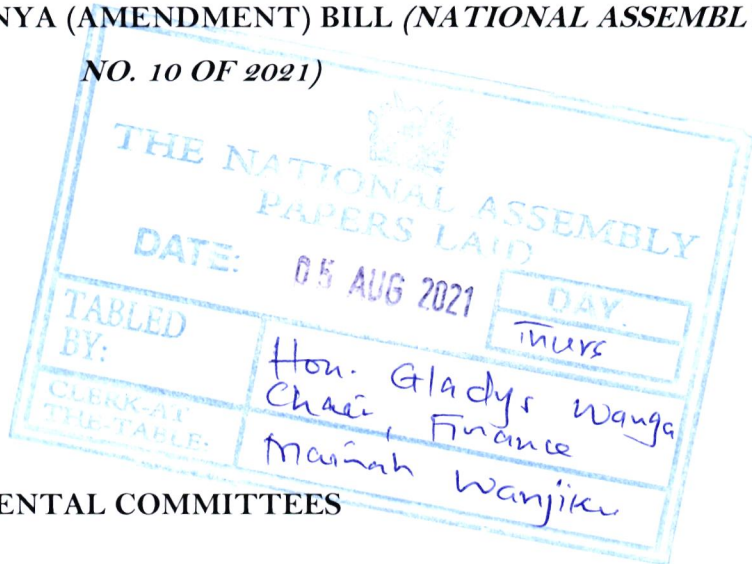 NYA (AMENDMENT) BILL (NATIONAL ASSEMBL
NO. 10 OF 2021)
THE NATIONAL ASSEMBLY
PAPERS LAID
DATE: 05 AUG 2021
DAY.
Thurs
TABLED
BY:
Hon. Gladys Wanga
Chair, Finance
CLERK-AT
THE-TABLE:
Wanjiku
ENTAL COMMITTEES